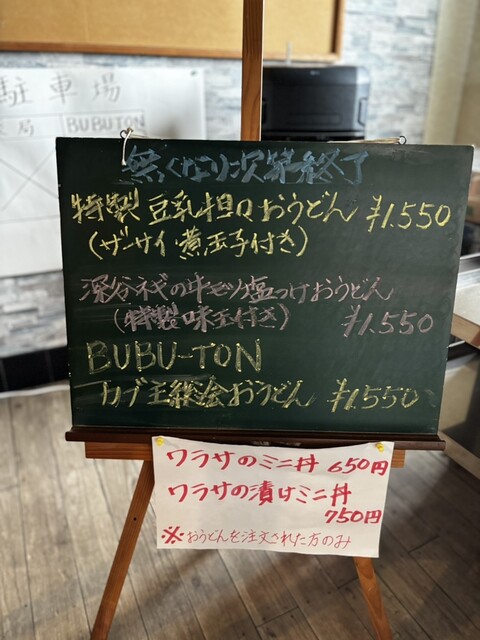 駐車場
局 BUBUTON
無くなり次第終了
特製 豆乳担々おうどん ¥1.550
(ザーサイ 煮玉子付き)
深谷ネギの牛モツ塩つけおうどん
(特製味玉付き) ¥1.550
BUBU-TON
カブ主総会おうどん ¥1.550
ワラサのミニ丼 650円
ワラサの漬けミニ丼
750円
※おうどんを注文された方のみ